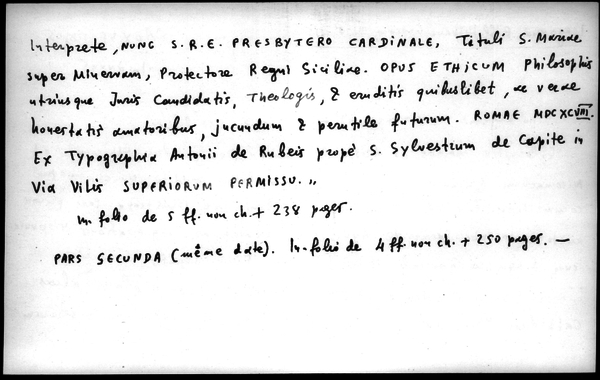 Interprete, NUNC S.R.E. PRESBYTERO CARDINALE, Tituli S. Mariae
super Minervam, Protectore Regni Siciliae. OPUS ETHICUM Philosophis
utriusque Juris Candidatis, Theologis, & eruditis quibuslibet, ac verae
honestatis amatoribus, jucundum & perutile futurum. ROMAE MDCXCVIII.
Ex Typographia Antonii de Rubeis propè S. Sylvestrum de Capite in
Via Vitis SUPERIORUM PERMISSU. „
in folio de 5 ff. non ch. + 238 pages.
PARS SECUNDA (même date). In-folio de 4 ff. non ch. + 250 pages. —